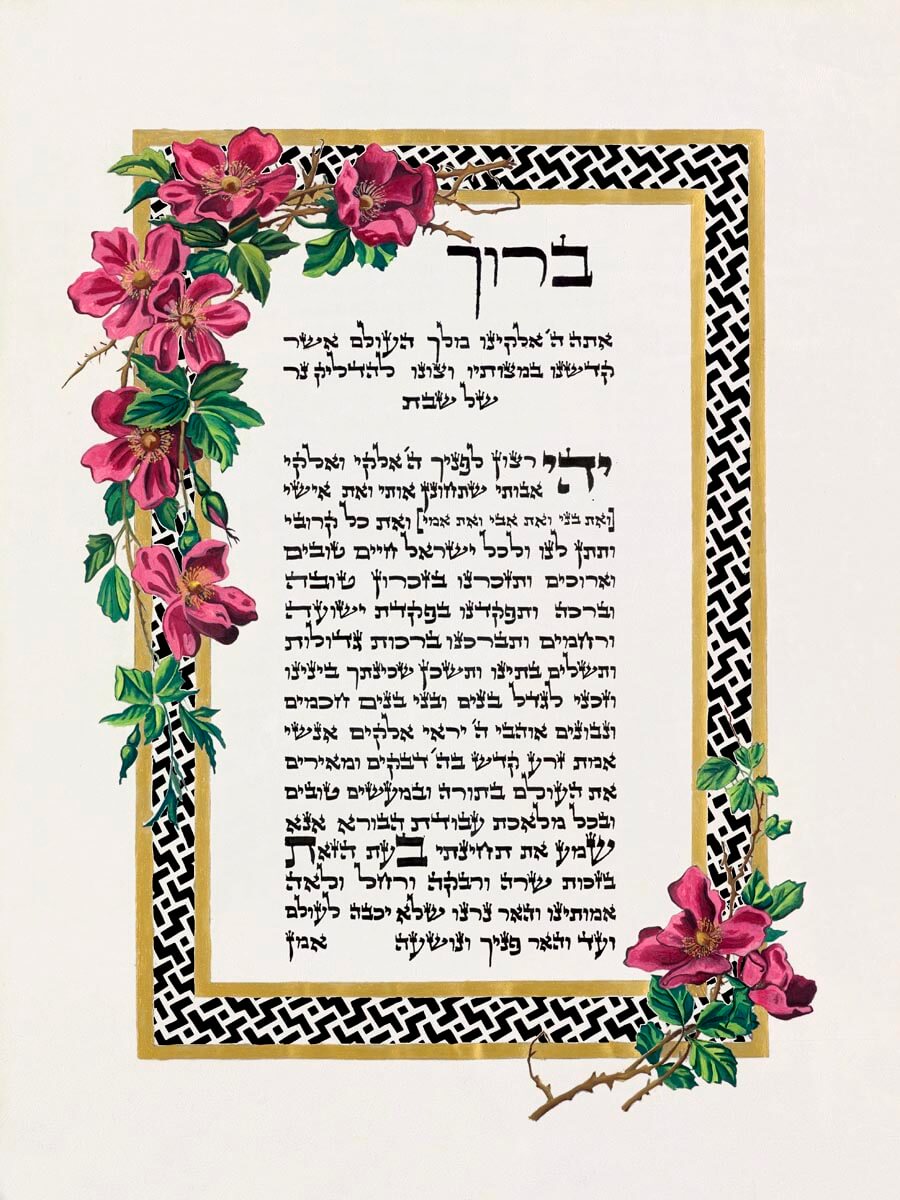 ברוך
אתה ה׳ אלקינו מלך העולם אשר
קדשנו במצותיו וצונו להדליק נר
של שבת
יהי רצון לפניך ה׳ אלקי ואלקי
אבותי שתחונן אותי ואת אישי
[ואת בני ואת אבי ואת אמי] ואת כל קרובי
ותתן לנו ולכל ישראל חיים טובים
וארוכים ותזכרנו בזכרון טובה
וברכה ותפקדנו בפקדת ישועה
ורחמים ותברכנו ברכות גדולות
ותשלים בתינו ותשכן שכינתך בינינו
וזכני לגדל בנים ובני בנים חכמים
ונבונים אוהבי ה׳ יראי אלקים אנשי
אמת זרע קדש בה׳ דבקים ומאירים
את העולם בתורה ובמעשים טובים
ובכל מלאכת עבודת הבורא אנא
שמע את תחינתי בעת הזאת
בזכות שרה ורבקה ורחל ולאה
אמותינו והאר נרנו שלא יכבה לעולם
ועד והאר פניך ונושעה אמן